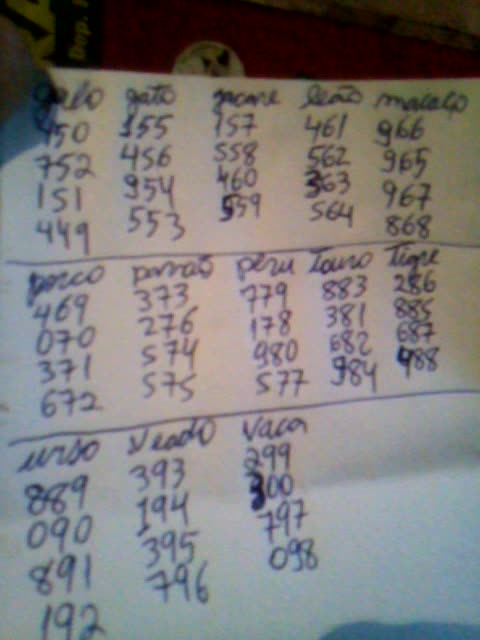 galo gato jacare leão macaco
450 155 157 461 966
752 456 558 562 965
151 954 460 363 967
449 553 559 564 868
porco pavão peru Touro Tigre
469 373 779 883 286
070 276 178 381 885
371 574 980 682 687
672 575 577 984 488
urso Veado Vaca
889 393 299
090 194 300
891 395 797
192 796 098
Dep.